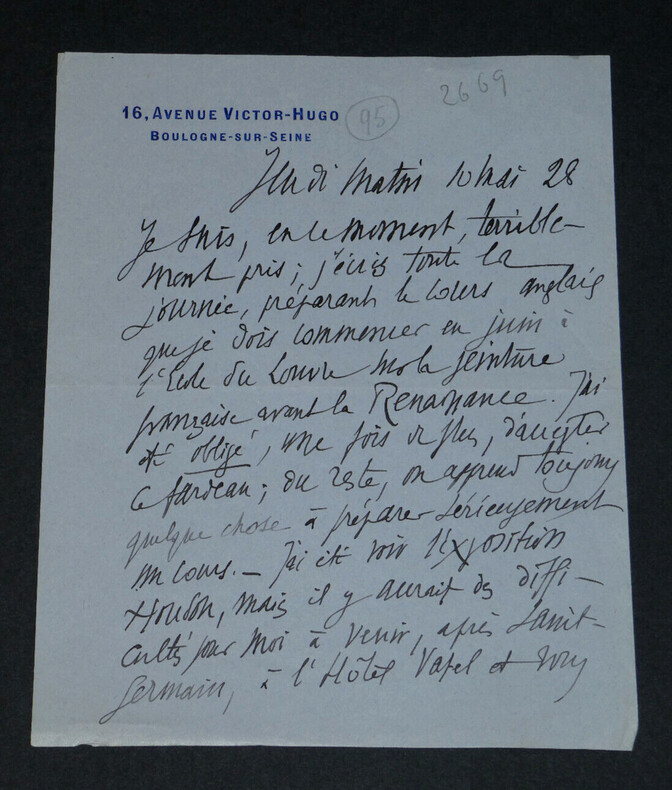 16, AVENUE VICTOR-HUGO
BOULOGNE-SUR-SEINE
95
2669
Jeudi matin 10 mai 28
Je suis, en ce moment, terrible-
ment pris ; j'écris toute la
journée, préparant le cours anglais
que je dois commencer en juin à
l'Ecole du Louvre sur la peinture
française avant la Renaissance. J'ai
été obligé, une fois de plus, d'accepter
ce fardeau ; du reste, on apprend toujours
quelque chose à préparer sérieusement
un cours. — J'ai été voir l'Exposition
Houdon, mais il y aurait des diffi-
cultés pour moi à venir, après Saint-
Germain, à l'Hôtel Vatel et